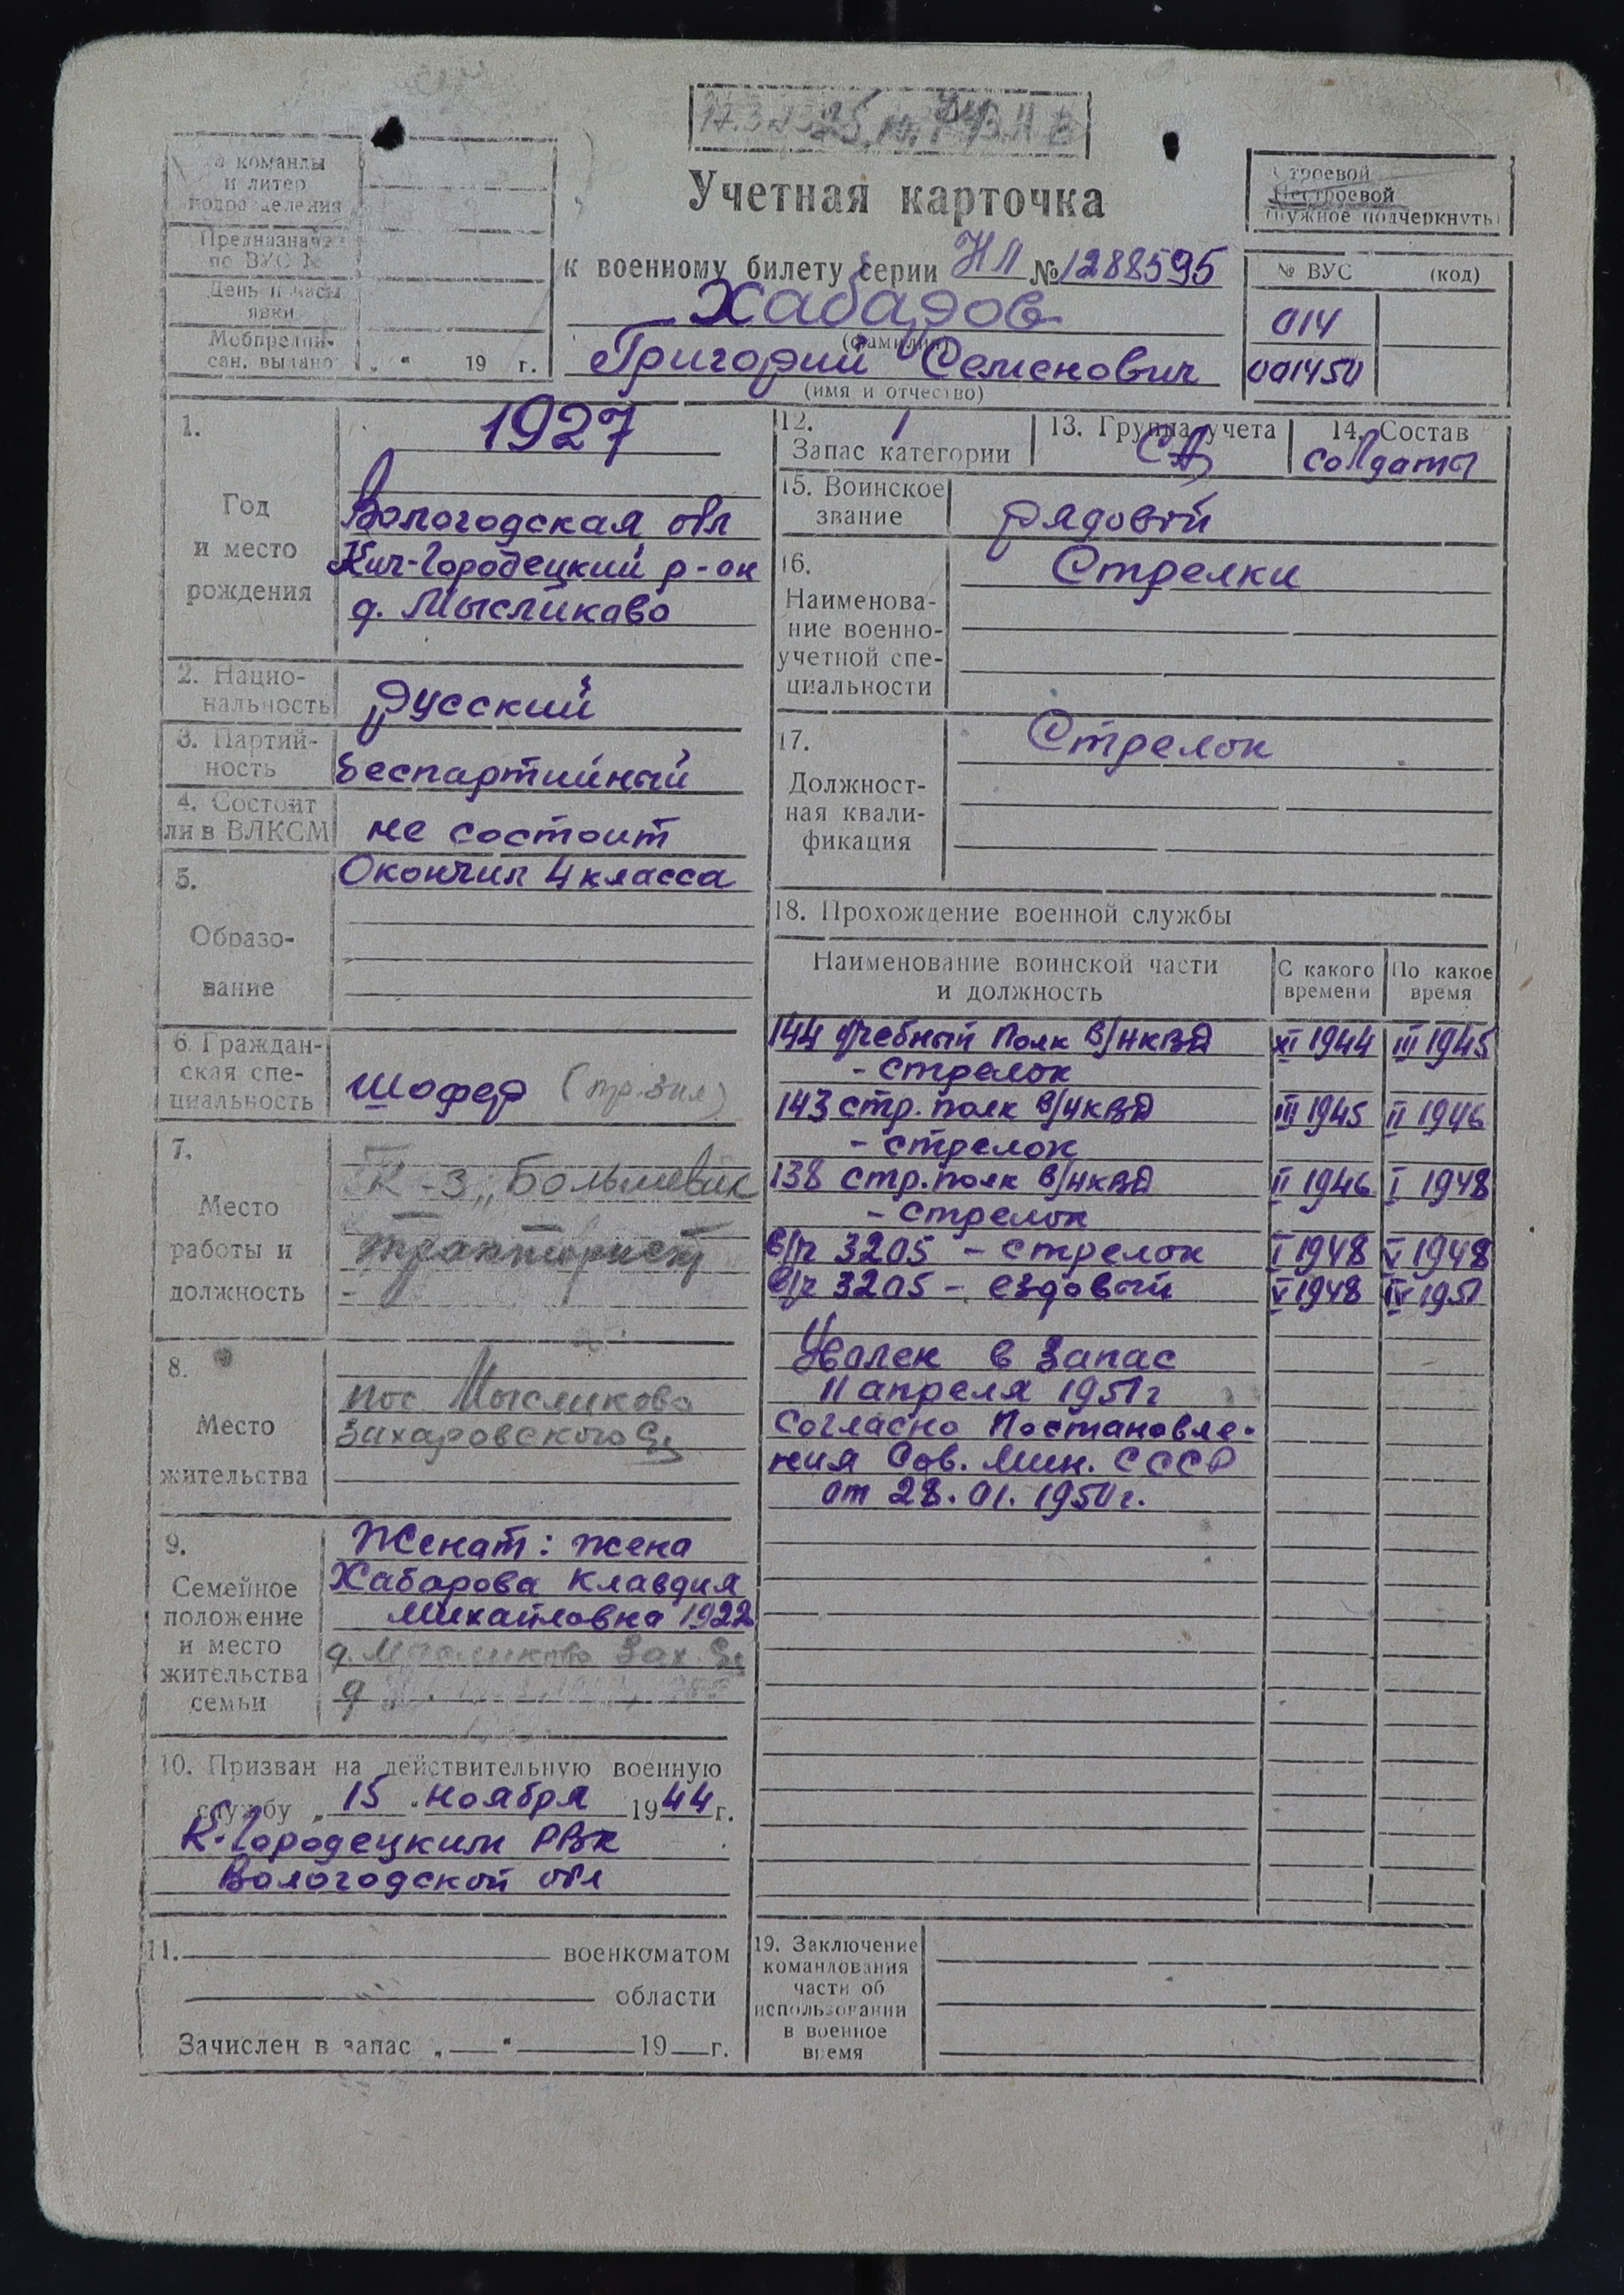 № команды
и литер
подразделения
Предназначен
по ВУС №
День и часы
явки
Мобпредпи-
сан. выдано „ “ 19 г.
Учетная карточка
к военному билету серии НЛ № 1288595
Хабаров
(фамилия)
Григорий Семенович
(имя и отчество)
Строевой
Нестроевой
(нужное подчеркнуть)
№ ВУС (код)
014
001450
1.
Год
и место
рождения
1927
Вологодская обл
Кич-Городецкий р-он
д. Мысликаво
2. Нацио-
нальность
русский
3. Партий-
ность
беспартийный
4. Состоит
ли в ВЛКСМ
не состоит
5.
Образо-
вание
Окончил 4 класса
6. Граждан-
ская спе-
циальность
шофер (тр. зил)
7.
Место
работы и
должность
К-з „Большевик
тракторист
8.
Место
жительства
пос. Мысликово
Захаровского
9.
Семейное
положение
и место
жительства
семьи
Женат: жена
Хабарова Клавдия
Михайловна 1922
д. Мысликово Зах.
д
10. Призван на действительную военную
службу „ 15 “ ноября 1944 г.
К-Городецким РВК
Вологодской обл
11. военкоматом
области
Зачислен в запас „ “ 19 г.
12. 1
Запас категории
13. Группа учета
СА
14. Состав
солдаты
15. Воинское
звание
рядовой
16.
Наименова-
ние военно-
учетной спе-
циальности
Стрелки
17.
Должност-
ная квали-
фикация
Стрелок
18. Прохождение военной службы
Наименование воинской части
и должность
С какого
времени
По какое
время
144 учебный полк В/НКВД XI 1944 III 1945
- стрелок
143 стр. полк В/НКВД III 1945 II 1946
- стрелок
138 стр. полк В/НКВД II 1946 I 1948
- стрелок
В/ч 3205 - стрелок I 1948 V 1948
В/ч 3205 - ездовый V 1948 IV 1951
Уволен в запас
11 апреля 1951г
Согласно Постановле-
ния Сов. Мин. СССР
от 28.01.1950г.
19. Заключение
командования
части об
использовании
в военное
время